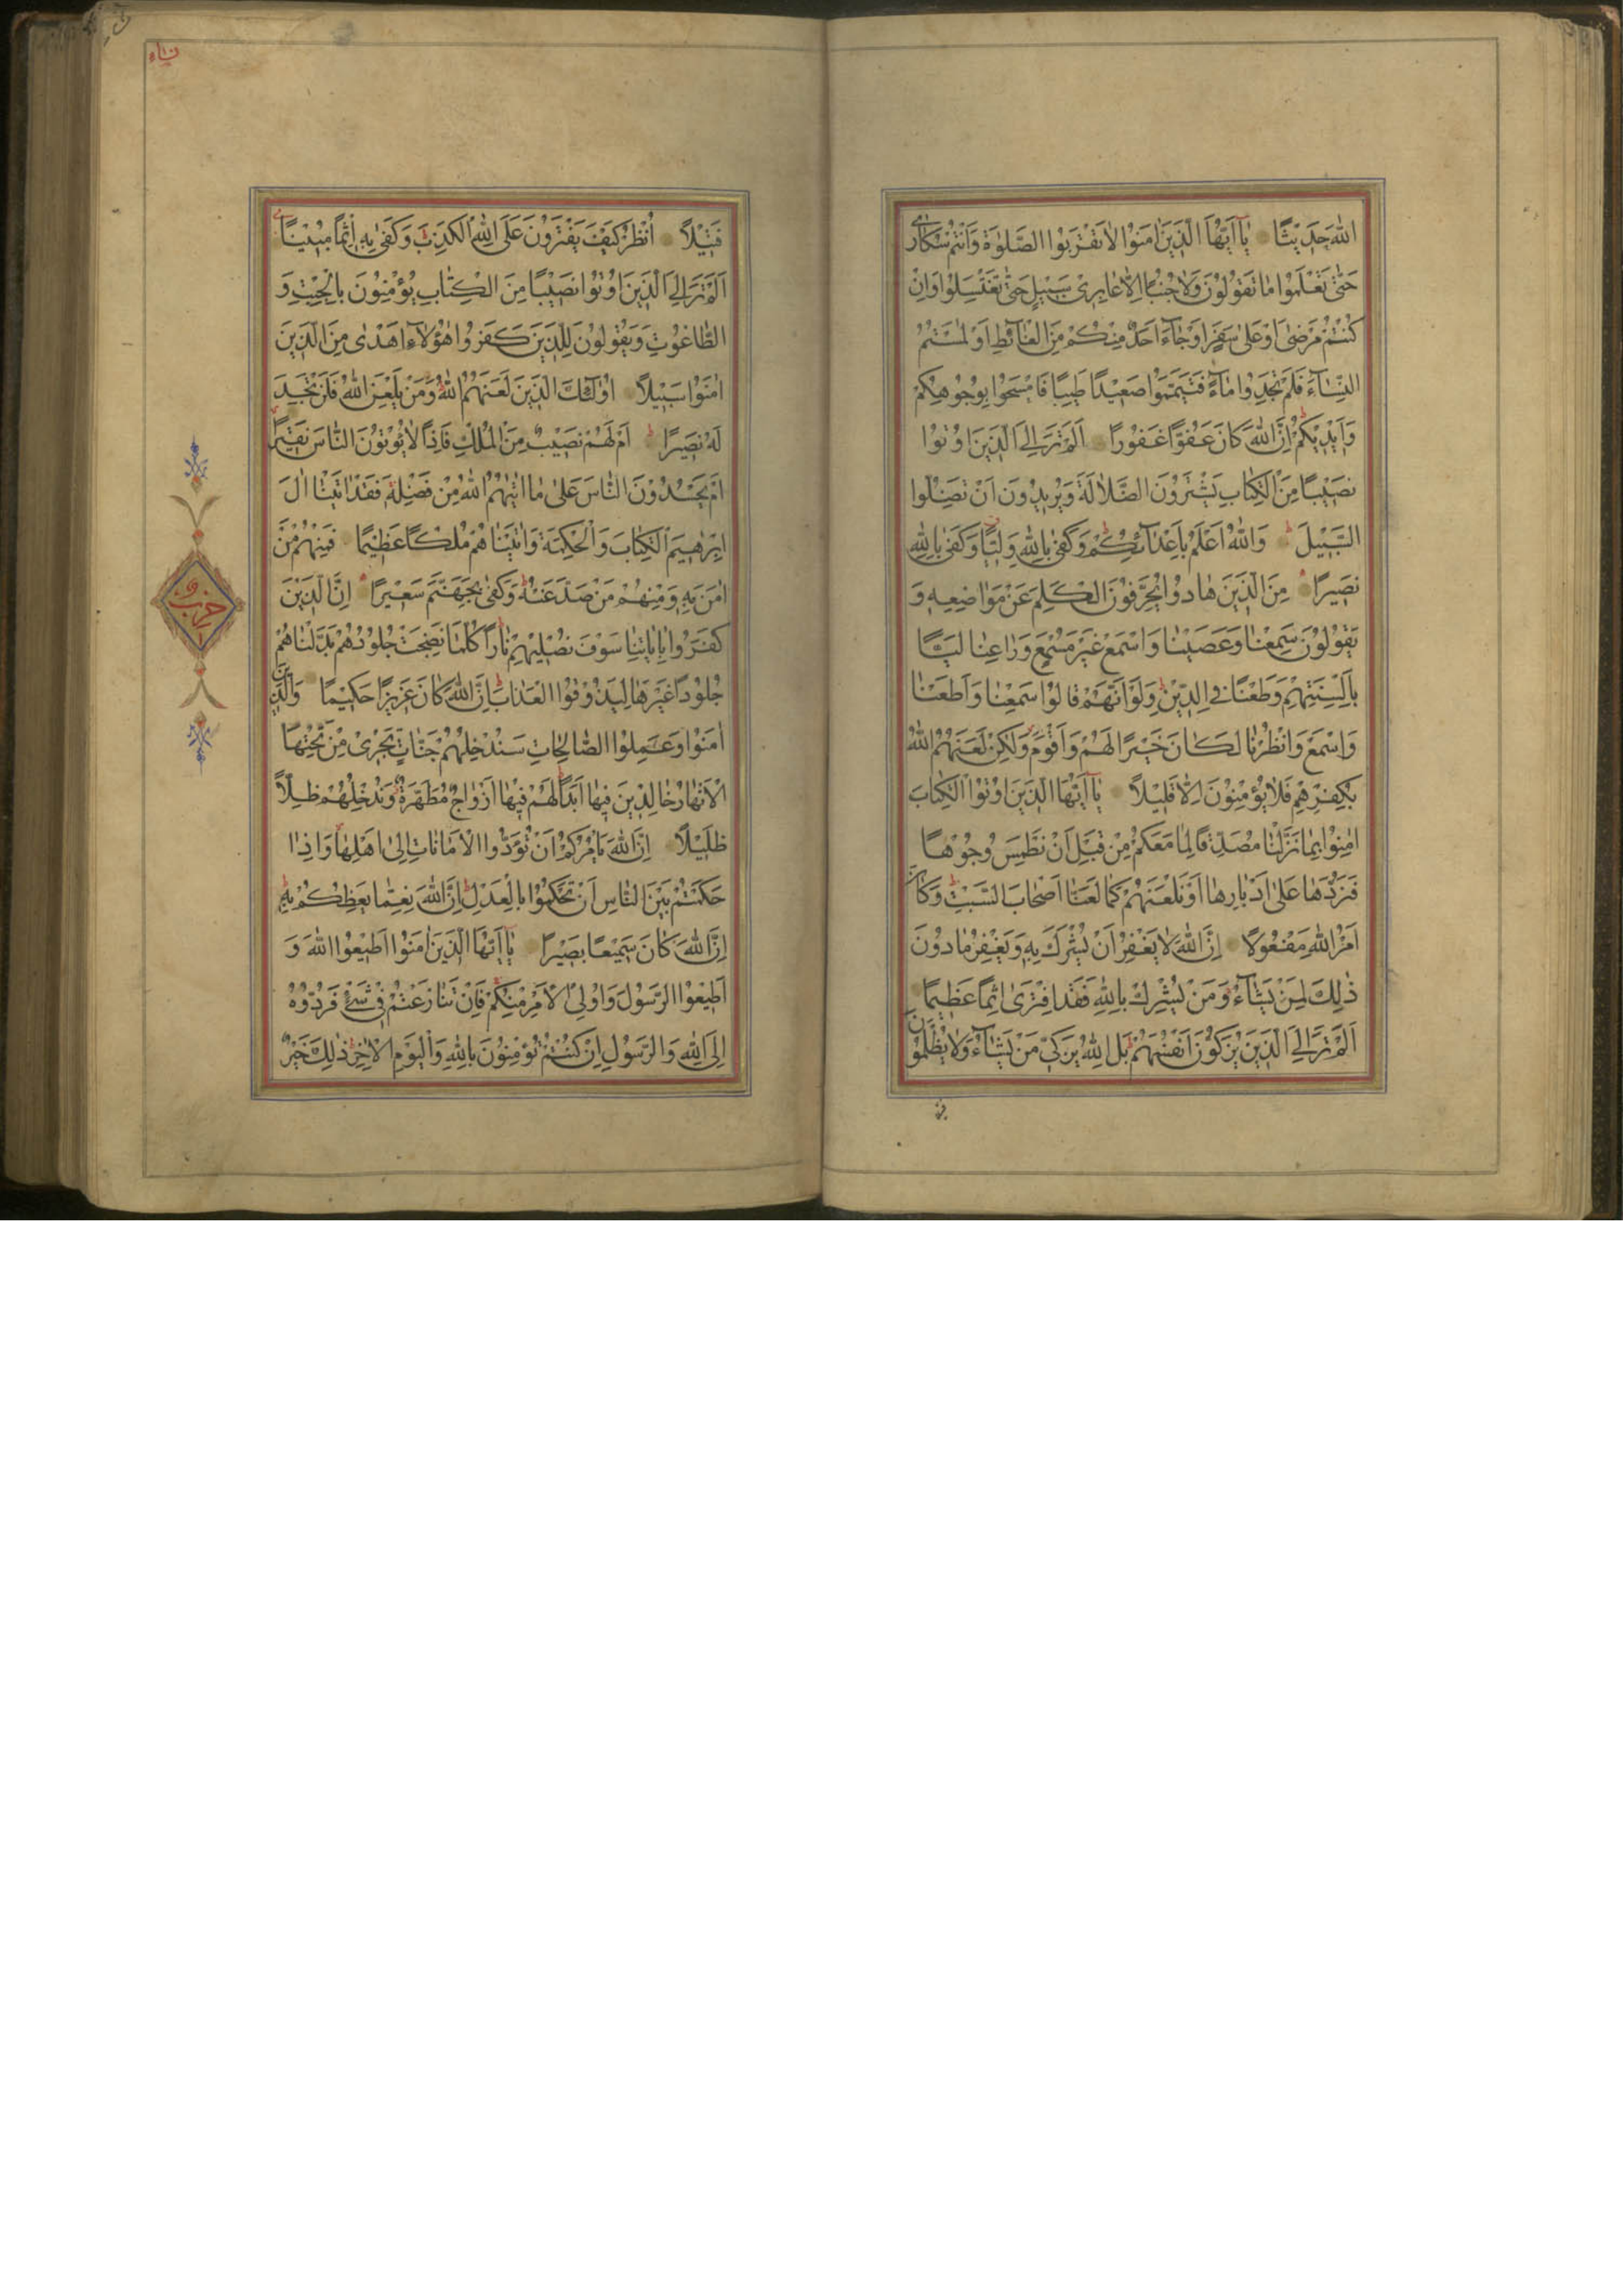 اللّٰهَ حَدِيثًا يَا اَيُّهَا الَّذِينَ اٰمَنُوا لَا تَقْرَبُوا الصَّلٰوةَ وَاَنْتُمْ سُكَارٰى
حَتّٰى تَعْلَمُوا مَا تَقُولُونَ وَلَا جُنُبًا اِلَّا عَابِرِى سَبِيلٍ حَتّٰى تَغْتَسِلُوا وَاِنْ
كُنْتُمْ مَرْضٰى اَوْ عَلٰى سَفَرٍ اَوْ جَاءَ اَحَدٌ مِنْكُمْ مِنَ الْغَائِطِ اَوْ لٰمَسْتُمُ
النِّسَاءَ فَلَمْ تَجِدُوا مَاءً فَتَيَمَّمُوا صَعِيدًا طَيِّبًا فَامْسَحُوا بِوُجُوهِكُمْ
وَاَيْدِيكُمْ اِنَّ اللّٰهَ كَانَ عَفُوًّا غَفُورًا اَلَمْ تَرَ اِلَى الَّذِينَ اُوتُوا
نَصِيبًا مِنَ الْكِتَابِ يَشْتَرُونَ الضَّلَالَةَ وَيُرِيدُونَ اَنْ تَضِلُّوا
السَّبِيلَ وَاللّٰهُ اَعْلَمُ بِاَعْدَائِكُمْ وَكَفٰى بِاللّٰهِ وَلِيًّا وَكَفٰى بِاللّٰهِ
نَصِيرًا مِنَ الَّذِينَ هَادُوا يُحَرِّفُونَ الْكَلِمَ عَنْ مَوَاضِعِهِ وَ
يَقُولُونَ سَمِعْنَا وَعَصَيْنَا وَاسْمَعْ غَيْرَ مُسْمَعٍ وَرَاعِنَا لَيًّا
بِاَلْسِنَتِهِمْ وَطَعْنًا فِى الدِّينِ وَلَوْ اَنَّهُمْ قَالُوا سَمِعْنَا وَاَطَعْنَا
وَاسْمَعْ وَانْظُرْنَا لَكَانَ خَيْرًا لَهُمْ وَاَقْوَمَ وَلٰكِنْ لَعَنَهُمُ اللّٰهُ
بِكُفْرِهِمْ فَلَا يُؤْمِنُونَ اِلَّا قَلِيلًا يَا اَيُّهَا الَّذِينَ اُوتُوا الْكِتَابَ
اٰمِنُوا بِمَا نَزَّلْنَا مُصَدِّقًا لِمَا مَعَكُمْ مِنْ قَبْلِ اَنْ نَطْمِسَ وُجُوهًا
فَنَرُدَّهَا عَلٰى اَدْبَارِهَا اَوْ نَلْعَنَهُمْ كَمَا لَعَنَّا اَصْحَابَ السَّبْتِ وَكَانَ
اَمْرُ اللّٰهِ مَفْعُولًا اِنَّ اللّٰهَ لَا يَغْفِرُ اَنْ يُشْرَكَ بِهِ وَيَغْفِرُ مَا دُونَ
ذٰلِكَ لِمَنْ يَشَاءُ وَمَنْ يُشْرِكْ بِاللّٰهِ فَقَدِ افْتَرٰى اِثْمًا عَظِيمًا
اَلَمْ تَرَ اِلَى الَّذِينَ يُزَكُّونَ اَنْفُسَهُمْ بَلِ اللّٰهُ يُزَكِّى مَنْ يَشَاءُ وَلَا يُظْلَمُونَ
فَتِيلًا اُنْظُرْ كَيْفَ يَفْتَرُونَ عَلَى اللّٰهِ الْكَذِبَ وَكَفٰى بِهِ اِثْمًا مُبِينًا
اَلَمْ تَرَ اِلَى الَّذِينَ اُوتُوا نَصِيبًا مِنَ الْكِتَابِ يُؤْمِنُونَ بِالْجِبْتِ وَ
الطَّاغُوتِ وَيَقُولُونَ لِلَّذِينَ كَفَرُوا هٰؤُلَاءِ اَهْدٰى مِنَ الَّذِينَ
اٰمَنُوا سَبِيلًا اُولٰئِكَ الَّذِينَ لَعَنَهُمُ اللّٰهُ وَمَنْ يَلْعَنِ اللّٰهُ فَلَنْ تَجِدَ
لَهُ نَصِيرًا اَمْ لَهُمْ نَصِيبٌ مِنَ الْمُلْكِ فَاِذًا لَا يُؤْتُونَ النَّاسَ نَقِيرًا
اَمْ يَحْسُدُونَ النَّاسَ عَلٰى مَا اٰتٰيهُمُ اللّٰهُ مِنْ فَضْلِهِ فَقَدْ اٰتَيْنَا اٰلَ
اِبْرٰهِيمَ الْكِتَابَ وَالْحِكْمَةَ وَاٰتَيْنَاهُمْ مُلْكًا عَظِيمًا فَمِنْهُمْ مَنْ
اٰمَنَ بِهِ وَمِنْهُمْ مَنْ صَدَّ عَنْهُ وَكَفٰى بِجَهَنَّمَ سَعِيرًا اِنَّ الَّذِينَ
كَفَرُوا بِاٰيَاتِنَا سَوْفَ نُصْلِيهِمْ نَارًا كُلَّمَا نَضِجَتْ جُلُودُهُمْ بَدَّلْنَاهُمْ
جُلُودًا غَيْرَهَا لِيَذُوقُوا الْعَذَابَ اِنَّ اللّٰهَ كَانَ عَزِيزًا حَكِيمًا وَالَّذِينَ
اٰمَنُوا وَعَمِلُوا الصَّالِحَاتِ سَنُدْخِلُهُمْ جَنَّاتٍ تَجْرِى مِنْ تَحْتِهَا
الْاَنْهَارُ خَالِدِينَ فِيهَا اَبَدًا لَهُمْ فِيهَا اَزْوَاجٌ مُطَهَّرَةٌ وَنُدْخِلُهُمْ ظِلًّا
ظَلِيلًا اِنَّ اللّٰهَ يَاْمُرُكُمْ اَنْ تُؤَدُّوا الْاَمَانَاتِ اِلٰى اَهْلِهَا وَاِذَا
حَكَمْتُمْ بَيْنَ النَّاسِ اَنْ تَحْكُمُوا بِالْعَدْلِ اِنَّ اللّٰهَ نِعِمَّا يَعِظُكُمْ بِهِ
اِنَّ اللّٰهَ كَانَ سَمِيعًا بَصِيرًا يَا اَيُّهَا الَّذِينَ اٰمَنُوا اَطِيعُوا اللّٰهَ وَ
اَطِيعُوا الرَّسُولَ وَاُولِى الْاَمْرِ مِنْكُمْ فَاِنْ تَنَازَعْتُمْ فِى شَىْءٍ فَرُدُّوهُ
اِلَى اللّٰهِ وَالرَّسُولِ اِنْ كُنْتُمْ تُؤْمِنُونَ بِاللّٰهِ وَالْيَوْمِ الْاٰخِرِ ذٰلِكَ خَيْرٌ
حزب